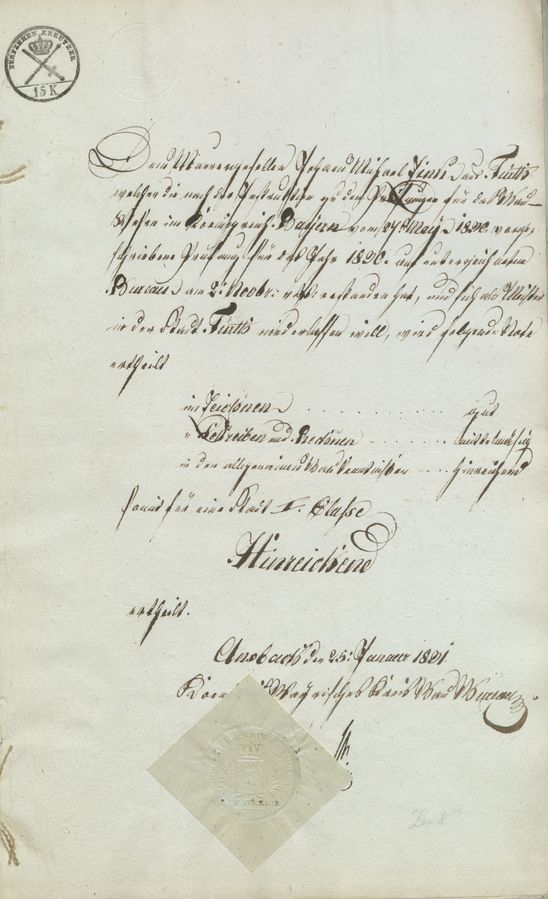 FÜNFZEHEN KREUTZER
15 K
Dem Maurergesellen Johann Michael Zink aus Fürth
welcher die nach der Instruktion zu den Prüfungen für das Bau-
Wesen im Königreich Bayern vom 27. May 1820 vorge-
schriebene Prüfung für das Jahr 1820 am unterzeichneten
Bureau am 2. Novbr: erstanden hat, und sich als Meister
in der Stadt Fürth niederlassen will, wird folgende Note
ertheilt
im Zeichnen gut
" Schreiben und Rechnen mittelmäßig
in den allgemeinen Bau Kenntnißen hinreichend
somit für eine Stadt I. Classe
Hinreichend
ertheilt.
Ansbach den 25. Januar 1821
Königlich Bayrisches Kreis Bau Bureau
Zink